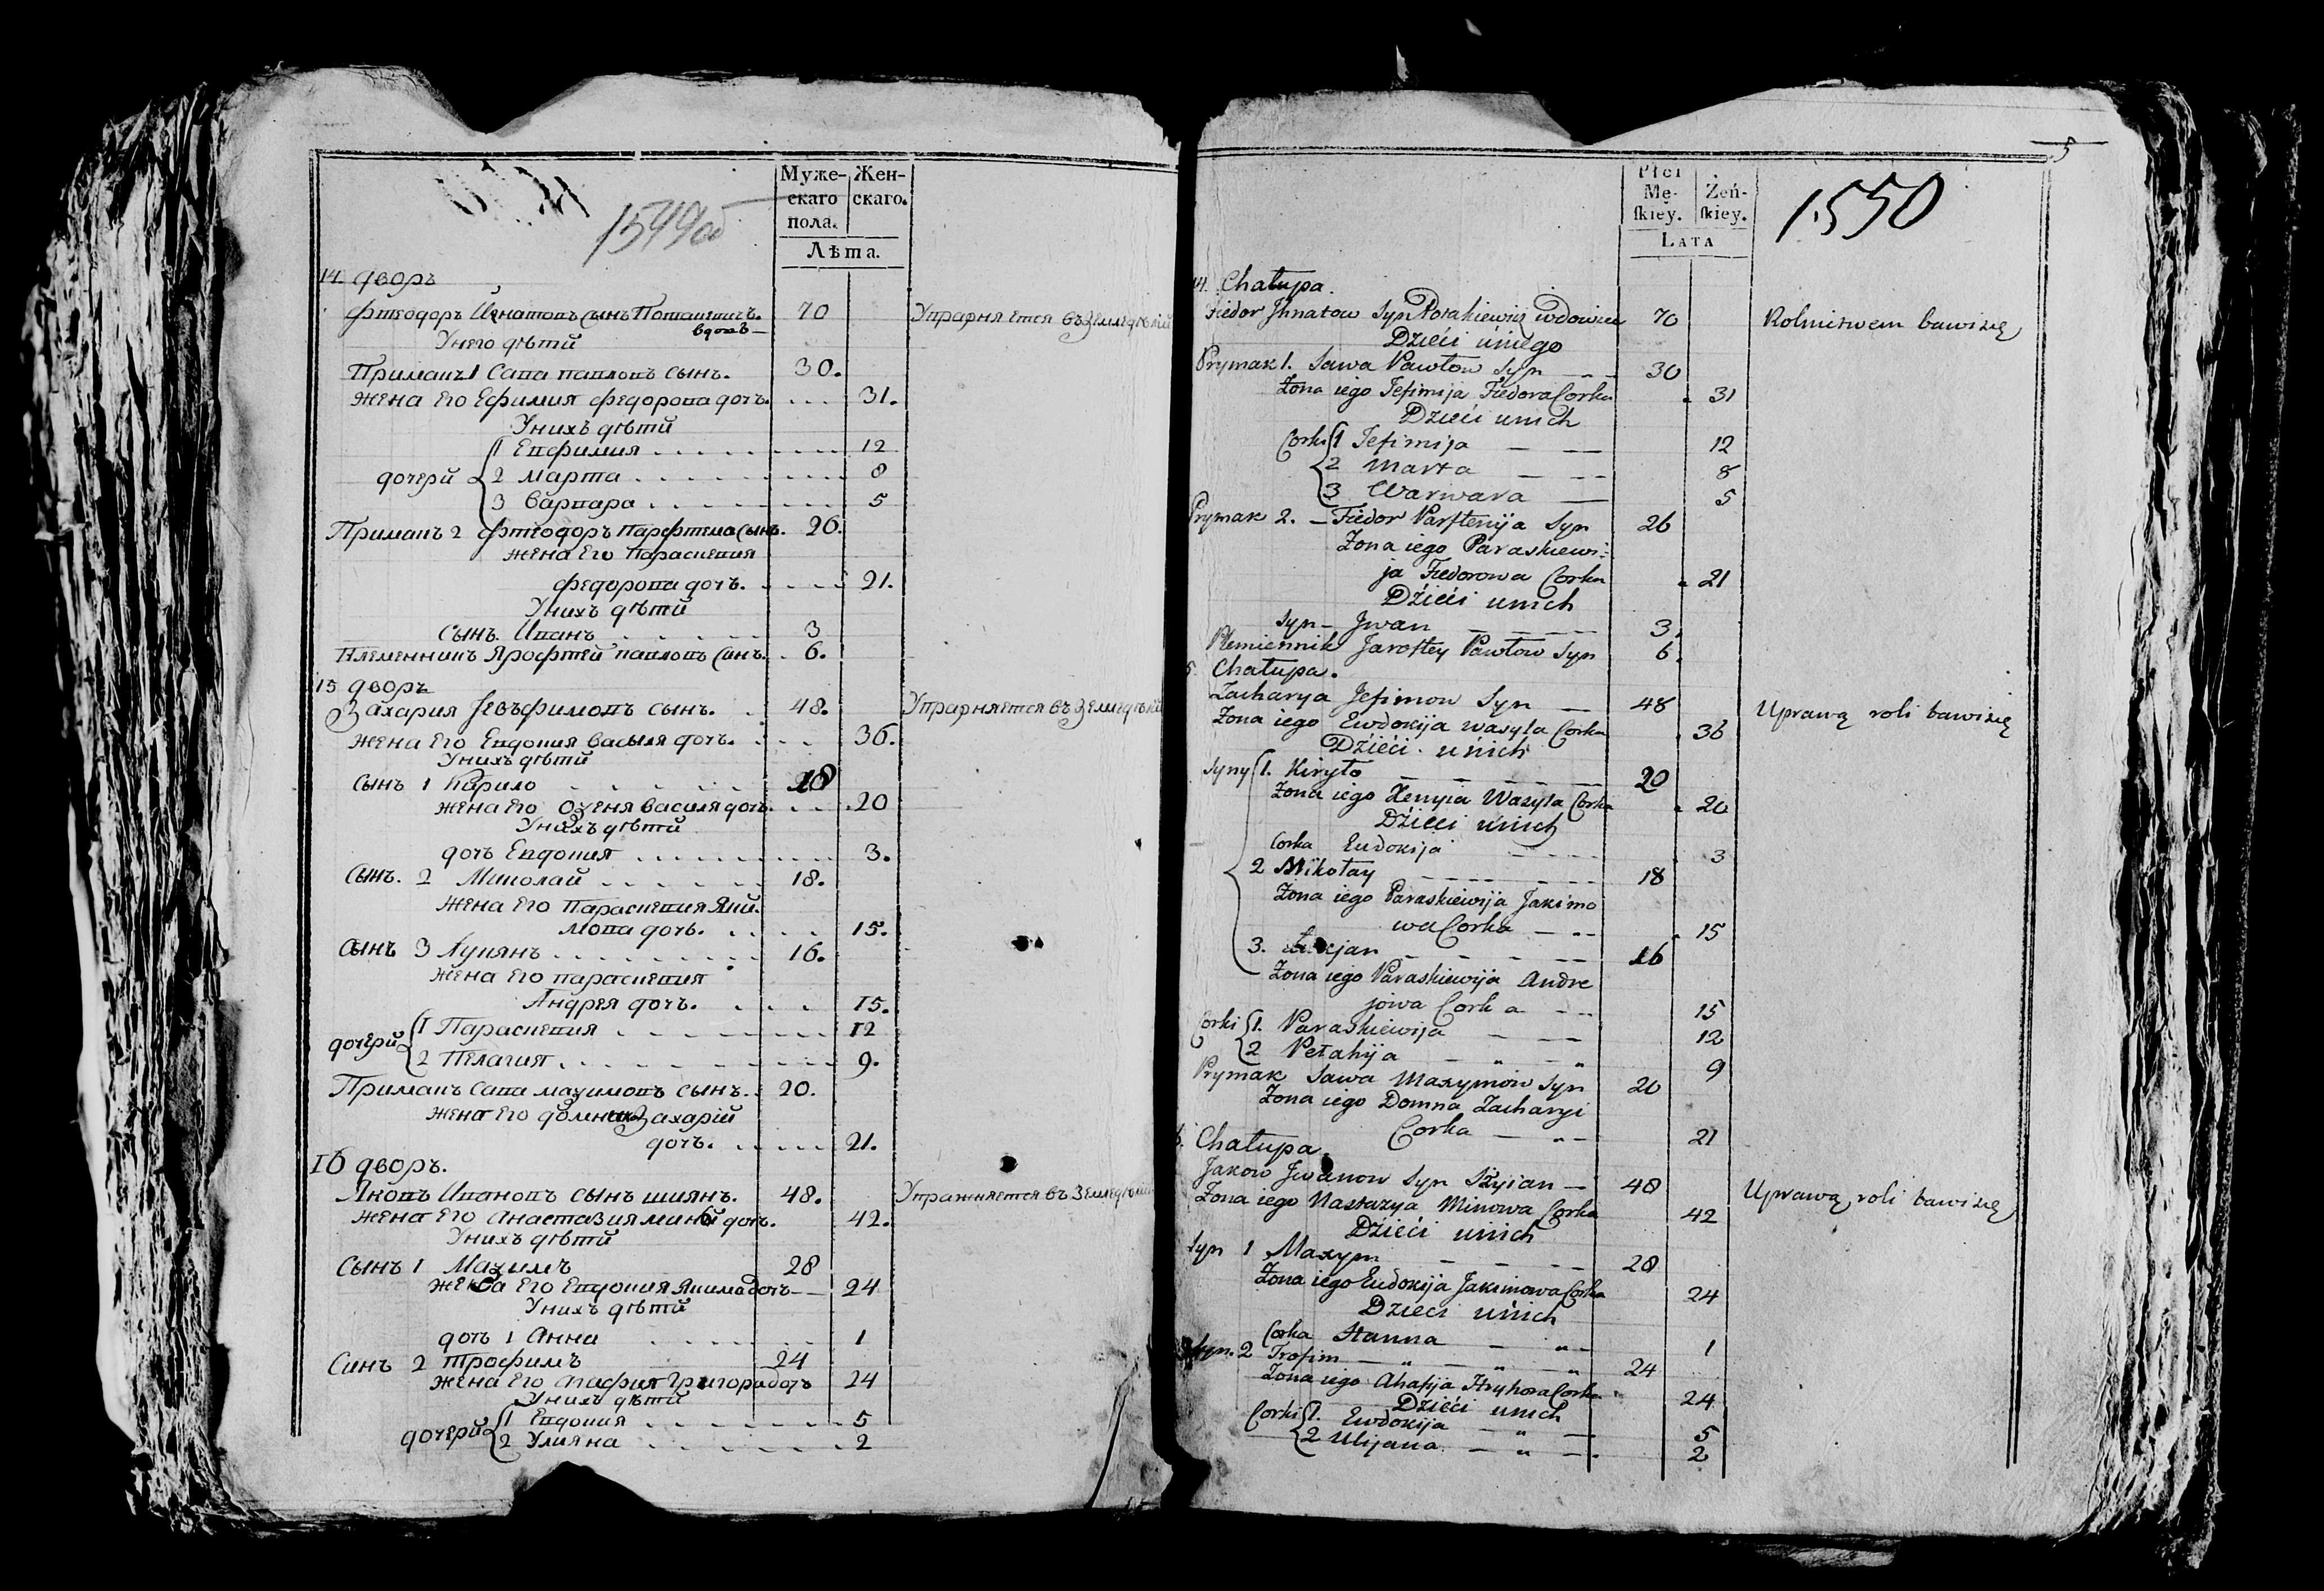 1549об
Муже-
скаго
пола.
Жен-
скаго.
Лѣта.
14. дворъ
Фтеодоръ Игнатовъ сынъ Потакевичъ. 70 Упражняется въ Земледѣлій
вдовъ —
Унего дѣтй
Примакъ 1 Сава павловъ сынъ. 30.
жена Его Ефимия федорова дочъ. 31.
Унихъ дѣтй
1 Евфимия 12
дочерй 2 марта 8
3 варвара 5
Примакъ 2 Фтеодоръ Парфтема сынъ. 26.
жена Его Параскевия
федорова дочъ. 21.
Унихъ дѣтй
Сынъ. Иванъ 3
Племенникъ Ярофтей павловъ Синъ. 6.
15 дворъ
Захария Јевъфимовъ сынъ. 48. Упражняется въ Земледѣлій
жена Его Евдокия васыля дочъ. 36.
Унихъ дѣтй
сынъ 1 Кирило
жена Его Оxеня василя дочъ. 20
Унихъ дѣтй
дочъ Евдокия 3.
Сынъ. 2 Миколай 18.
жена Его Параскевия Яки.
мова дочъ. 15.
Сынъ 3 Лукянъ 16.
жена Его параскевия
Андрея дочъ. 15.
дочерй 1 Параскевия 12
2 Пелагия 9.
Примакъ Сава маxимовъ сынъ. 20.
жена Его домна Захарiй
дочъ. 21.
16 дворъ.
Яковъ Ивановъ сынъ шиянъ. 48. Упражняется въ Земледѣлій
жена Его Анастазия мины дочъ. 42.
Унихъ дѣтй
Сынъ 1 Маxимъ 28
жена Его Евдокия Якима дочъ 24
Унихъ дѣтй
дочъ 1 Анна 1
Синъ 2 трофимъ 24
жена Его Агафия Григора дочъ 24
Унихъ дѣтй
дочерй 1 Евдокия 5
2 Улияна 2
5
Płci
Mę-
ſkiey.
Żeń-
ſkiey.
LATA
1550
14. Chałupa.
Fiedor Jhnatow Syn Potakiewicz wdowiec 70 Rolnictwem bawi się
Dzieći úniego
Prymak 1. Sawa Pawłow Syn 30
Żona iego Jefimija Fiedora Corka 31
Dzieći unich
Corki 1 Jefimija 12
2 Marta 8
3 Warwara 5
Prymak 2. Fiedor Parftenija Syn 26
Żona iego Paraskiewi-
ja Fiedorowa Corka 21
Dzieći unich
Syn Jwan 3
Plemiennik Jaroftey Pawłow Syn 6
5. Chałupa.
Zacharya Jefimow Syn 48 Uprawą roli bawi się
Żona iego Ewdokija Wasyla Corka 36
Dzieći unich
Syny 1. Kiryło 20
Żona iego Xenyia Wasyla Corka 20
Dzieći unich
Corka Eudokija 3
2 Mikołay 18
Żona iego Paraskiewija Jakimo
wa Corka 15
3. Łukjan 16
Żona iego Paraskiewija Andre
jowa Corka 15
Corki 1. Paraskiewija 12
2 Pełahija 9
Prymak Sawa Maxymow Syn 20
Żona iego Domna Zacharyi
Corka 21
6. Chałupa.
Jakow Jwanow Syn Szyian 48 Uprawą roli bawi się
Żona iego Nastazya Minowa Corka 42
Dzieći unich
Syn 1 Maxym 28
Żona iego Eudokija Jakimowa Corka 24
Dzieci unich
Corka Hanna 1
Syn. 2 Trofim 24
Żona iego Ahafija Hryhora Corka 24
Dzieći unich
Corki 1. Ewdokija 5
2 Ulijana 2